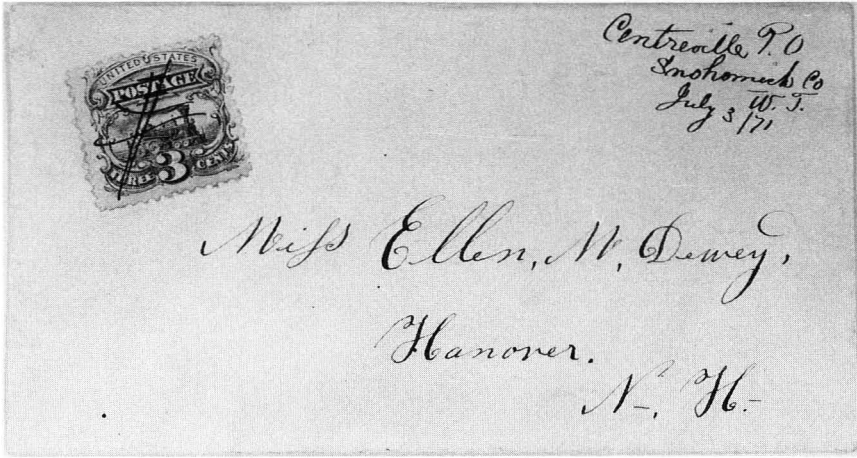 UNITED STATES
POSTAGE
THREE 3 CENTS
Centreville P.O
Snohomish Co
W. T.
July 3/71
Miss Ellen, M, Dewey,
Hanover.
N-, H.-